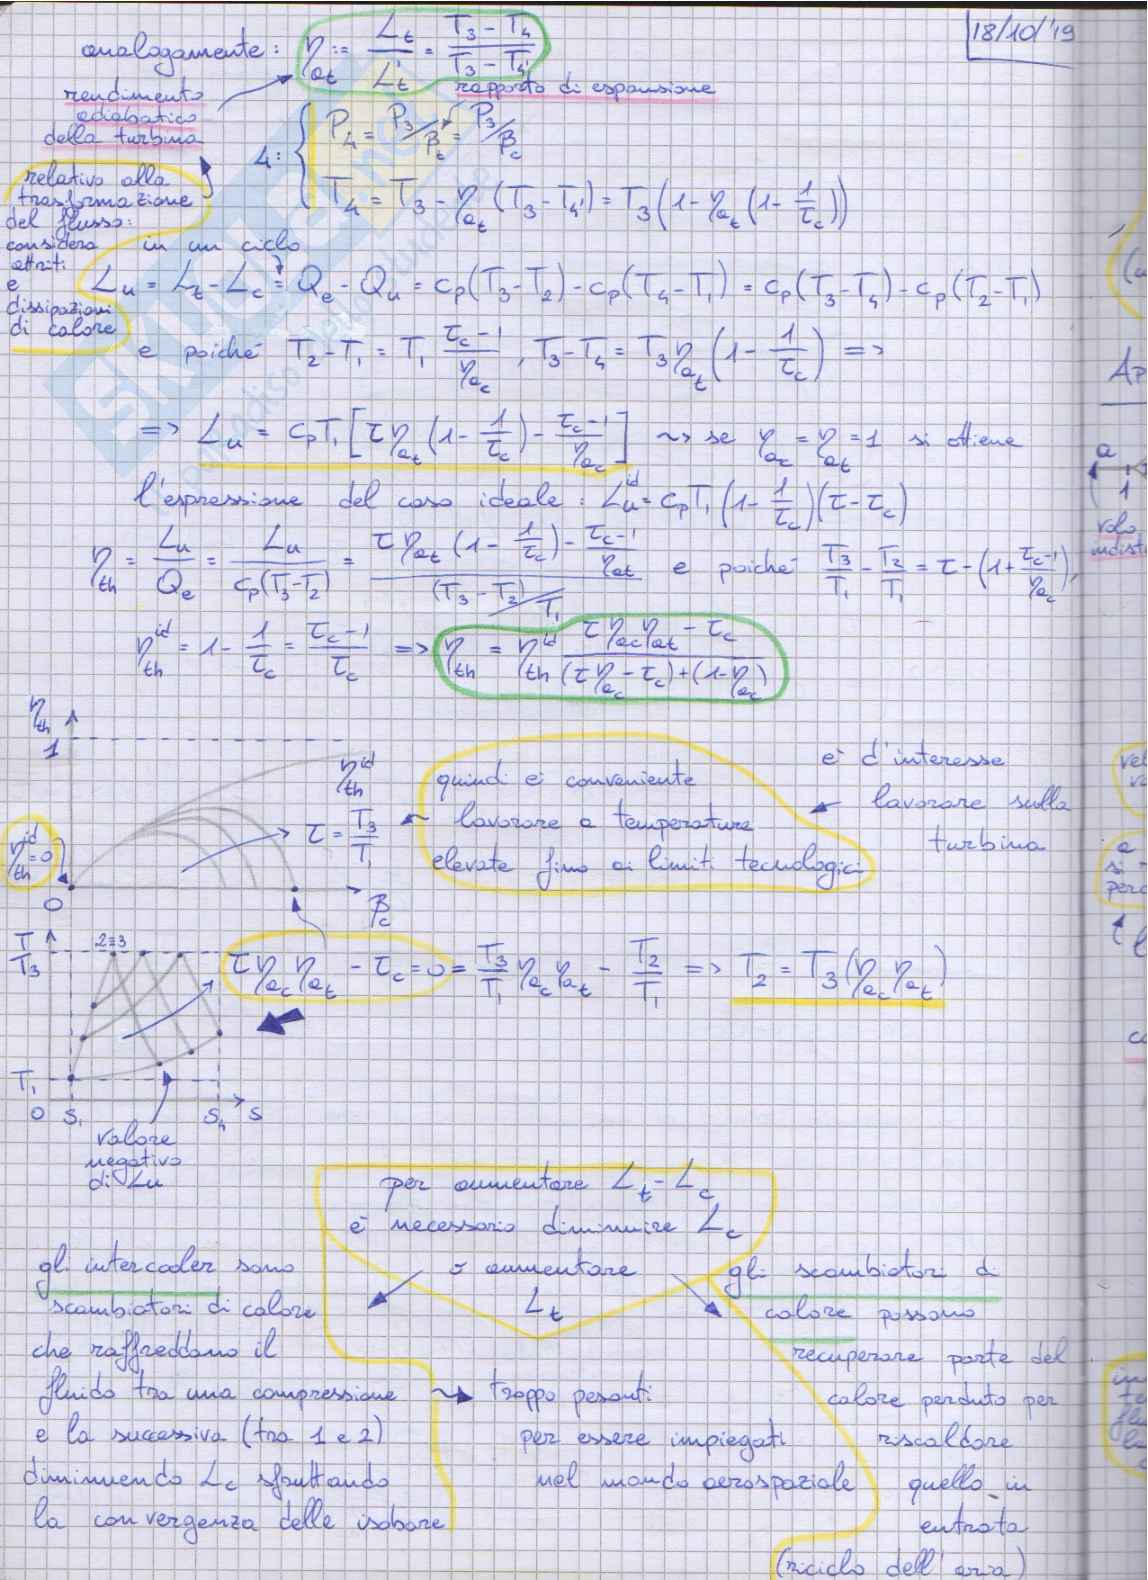 18/10/'19
analogamente: η_at := L_t / L_t' = (T3 - T4) / (T3 - T4')
rendimento
adiabatico
della turbina
rapporto di espansione
4: { P4 = P3/βc = P3/βc
T4 = T3 - η_at (T3 - T4') = T3 (1 - η_at (1 - 1/τc))
relativo alla
trasformazione
del flusso:
considera
attriti
e
dissipazioni
di calore
in un ciclo
Lu = Lt - Lc = Qe - Qu = cp(T3 - T2) - cp(T4 - T1) = cp(T3 - T4) - cp(T2 - T1)
e poiché T2 - T1 = T1 (τc - 1)/η_ac , T3 - T4 = T3 η_at (1 - 1/τc) =>
=> Lu = cpT1 [τ η_at (1 - 1/τc) - (τc - 1)/η_ac] ~> se η_ac = η_at = 1 si ottiene
l'espressione del caso ideale: Lu^id = cpT1 (1 - 1/τc)(τ - τc)
η_th = Lu/Qe = Lu/(cp(T3 - T2)) = (τ η_at (1 - 1/τc) - (τc - 1)/η_at) / ((T3 - T2)/T1) e poiché T3/T1 - T2/T1 = τ - (1 + (τc - 1)/η_ac),
η_th^id = 1 - 1/τc = (τc - 1)/τc => η_th = η_th^id (τ η_ac η_at - τc) / ((τ η_ac - τc) + (1 - η_ac))
η_th
1
η_th^id
η_th^id = 0
0
βc
τ = T3/T1
quindi è conveniente
lavorare a temperature
elevate fino ai limiti tecnologici
è d'interesse
lavorare sulla
turbina
T
T3
2≡3
T1
0 S1 S4 S
τ η_ac η_at - τc = 0 = T3/T1 η_ac η_at - T2/T1 => T2 = T3 (η_ac η_at)
valore
negativo
di Lu
per aumentare Lt - Lc
è necessario diminuire Lc
o aumentare
Lt
gli intercooler sono
scambiatori di calore
che raffreddano il
fluido tra una compressione
e la successiva (tra 1 e 2)
diminuendo Lc sfruttando
la convergenza delle isobare
troppo pesanti
per essere impiegati
nel mondo aerospaziale
gli scambiatori di
calore possono
recuperare parte del
calore perduto per
riscaldare
quello in
entrata
(riciclo dell'aria)